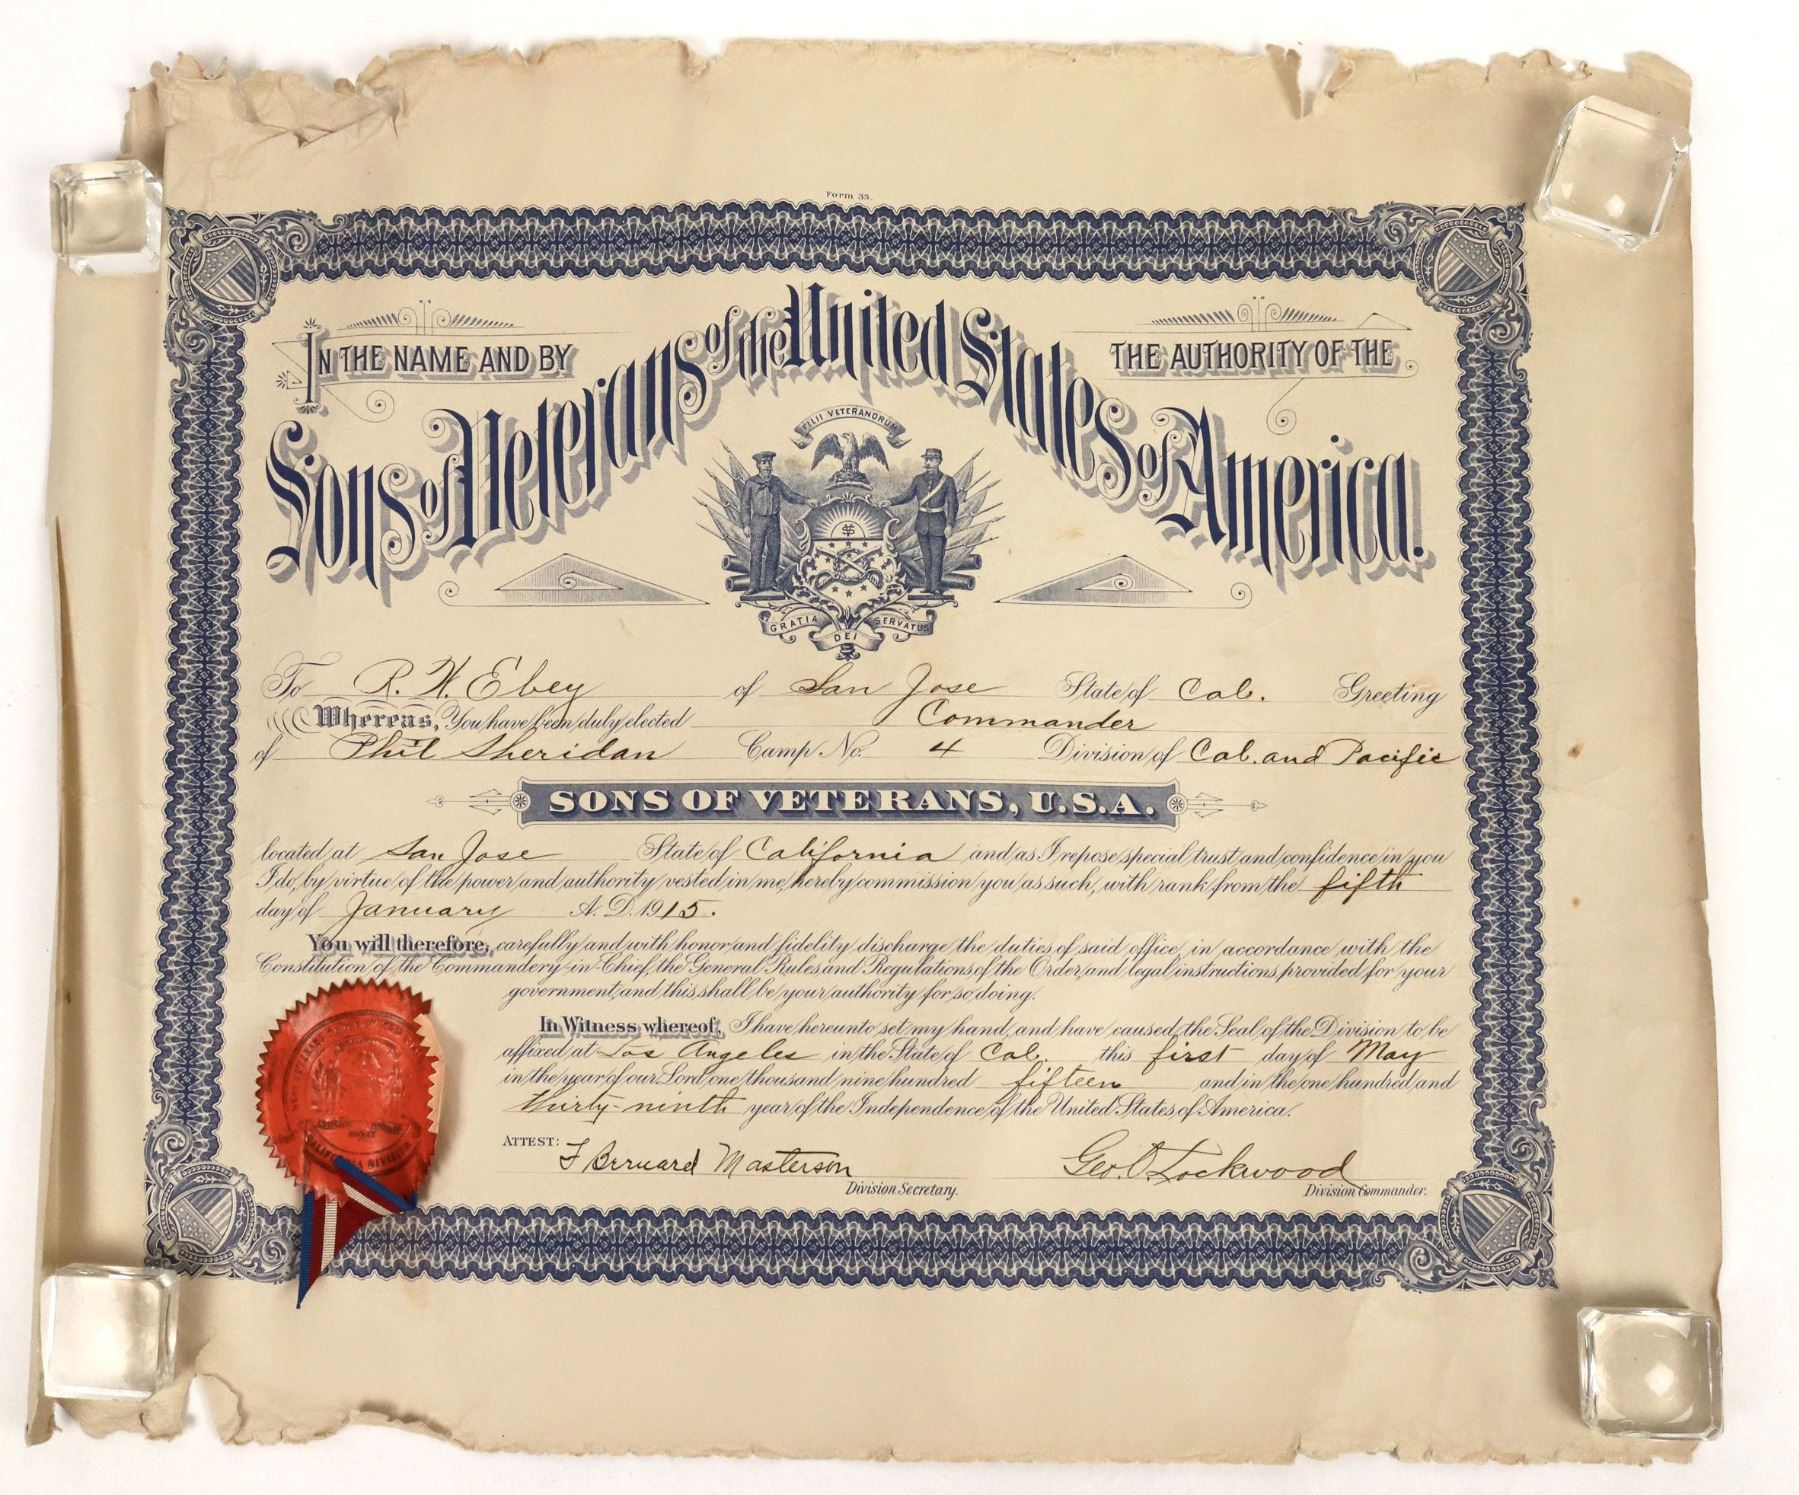 Form 33.
IN THE NAME AND BY THE AUTHORITY OF THE
Sons of Veterans of the United States of America.
FILII VETERANORUM
GRATIA DEI SERVATUS
To R. W. Ebey of San Jose State of Cal. Greeting
Whereas, You have been duly elected Commander
of Phil Sheridan Camp No. 4 Division of Cal. and Pacific
SONS OF VETERANS, U.S.A.
located at San Jose State of California and as I repose special trust and confidence in you
I do, by virtue of the power and authority vested in me, hereby commission you as such, with rank from the fifth
day of January A.D. 1915.
You will therefore, carefully and with honor and fidelity discharge the duties of said office, in accordance with the
Constitution of the Commandery-in-Chief, the General Rules and Regulations of the Order, and legal instructions provided for your
government, and this shall be your authority for so doing.
In Witness whereof, I have hereunto set my hand, and have caused the Seal of the Division to be
affixed at Los Angeles in the State of Cal. this first day of May
in the year of our Lord one thousand nine hundred fifteen and in the one hundred and
thirty-ninth year of the Independence of the United States of America.
ATTEST: F Bernard Masterson Geo. O Lockwood
Division Secretary. Division Commander.
CALIFORNIA DIVISION